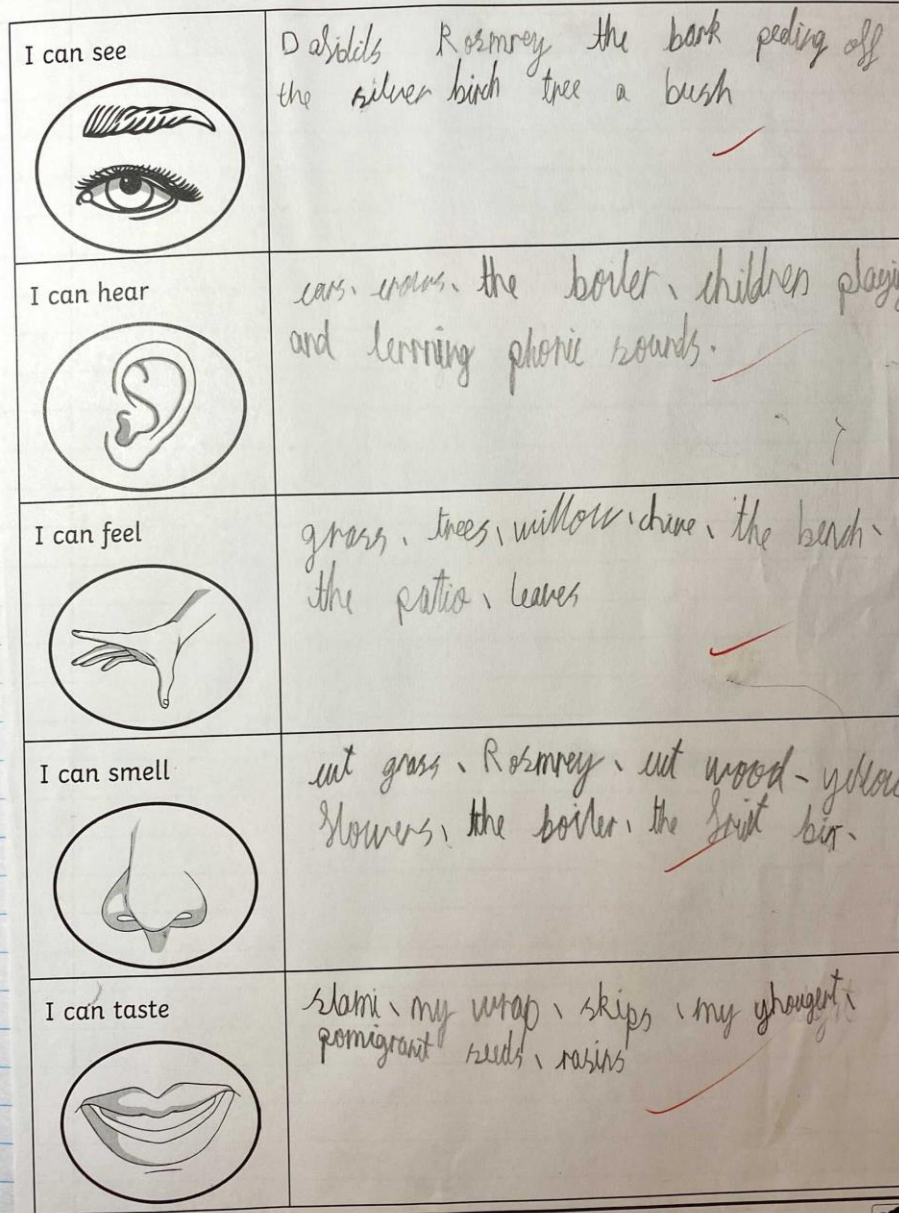 I can see
Dafidils Rosmrey the bark peeling off
the silver birch tree a bush
I can hear
cars, crows, the boiler, children playi
and lernning phonic sounds.
I can feel
grass, trees, willow, chive, the bench,
the patio, leaves
I can smell
cut grass, Rosmrey, cut wood - yellow
flowers, the boiler, the fruit bin.
I can taste
slami, my wrap, skips, my yhougert,
pomigranit seeds, rasins